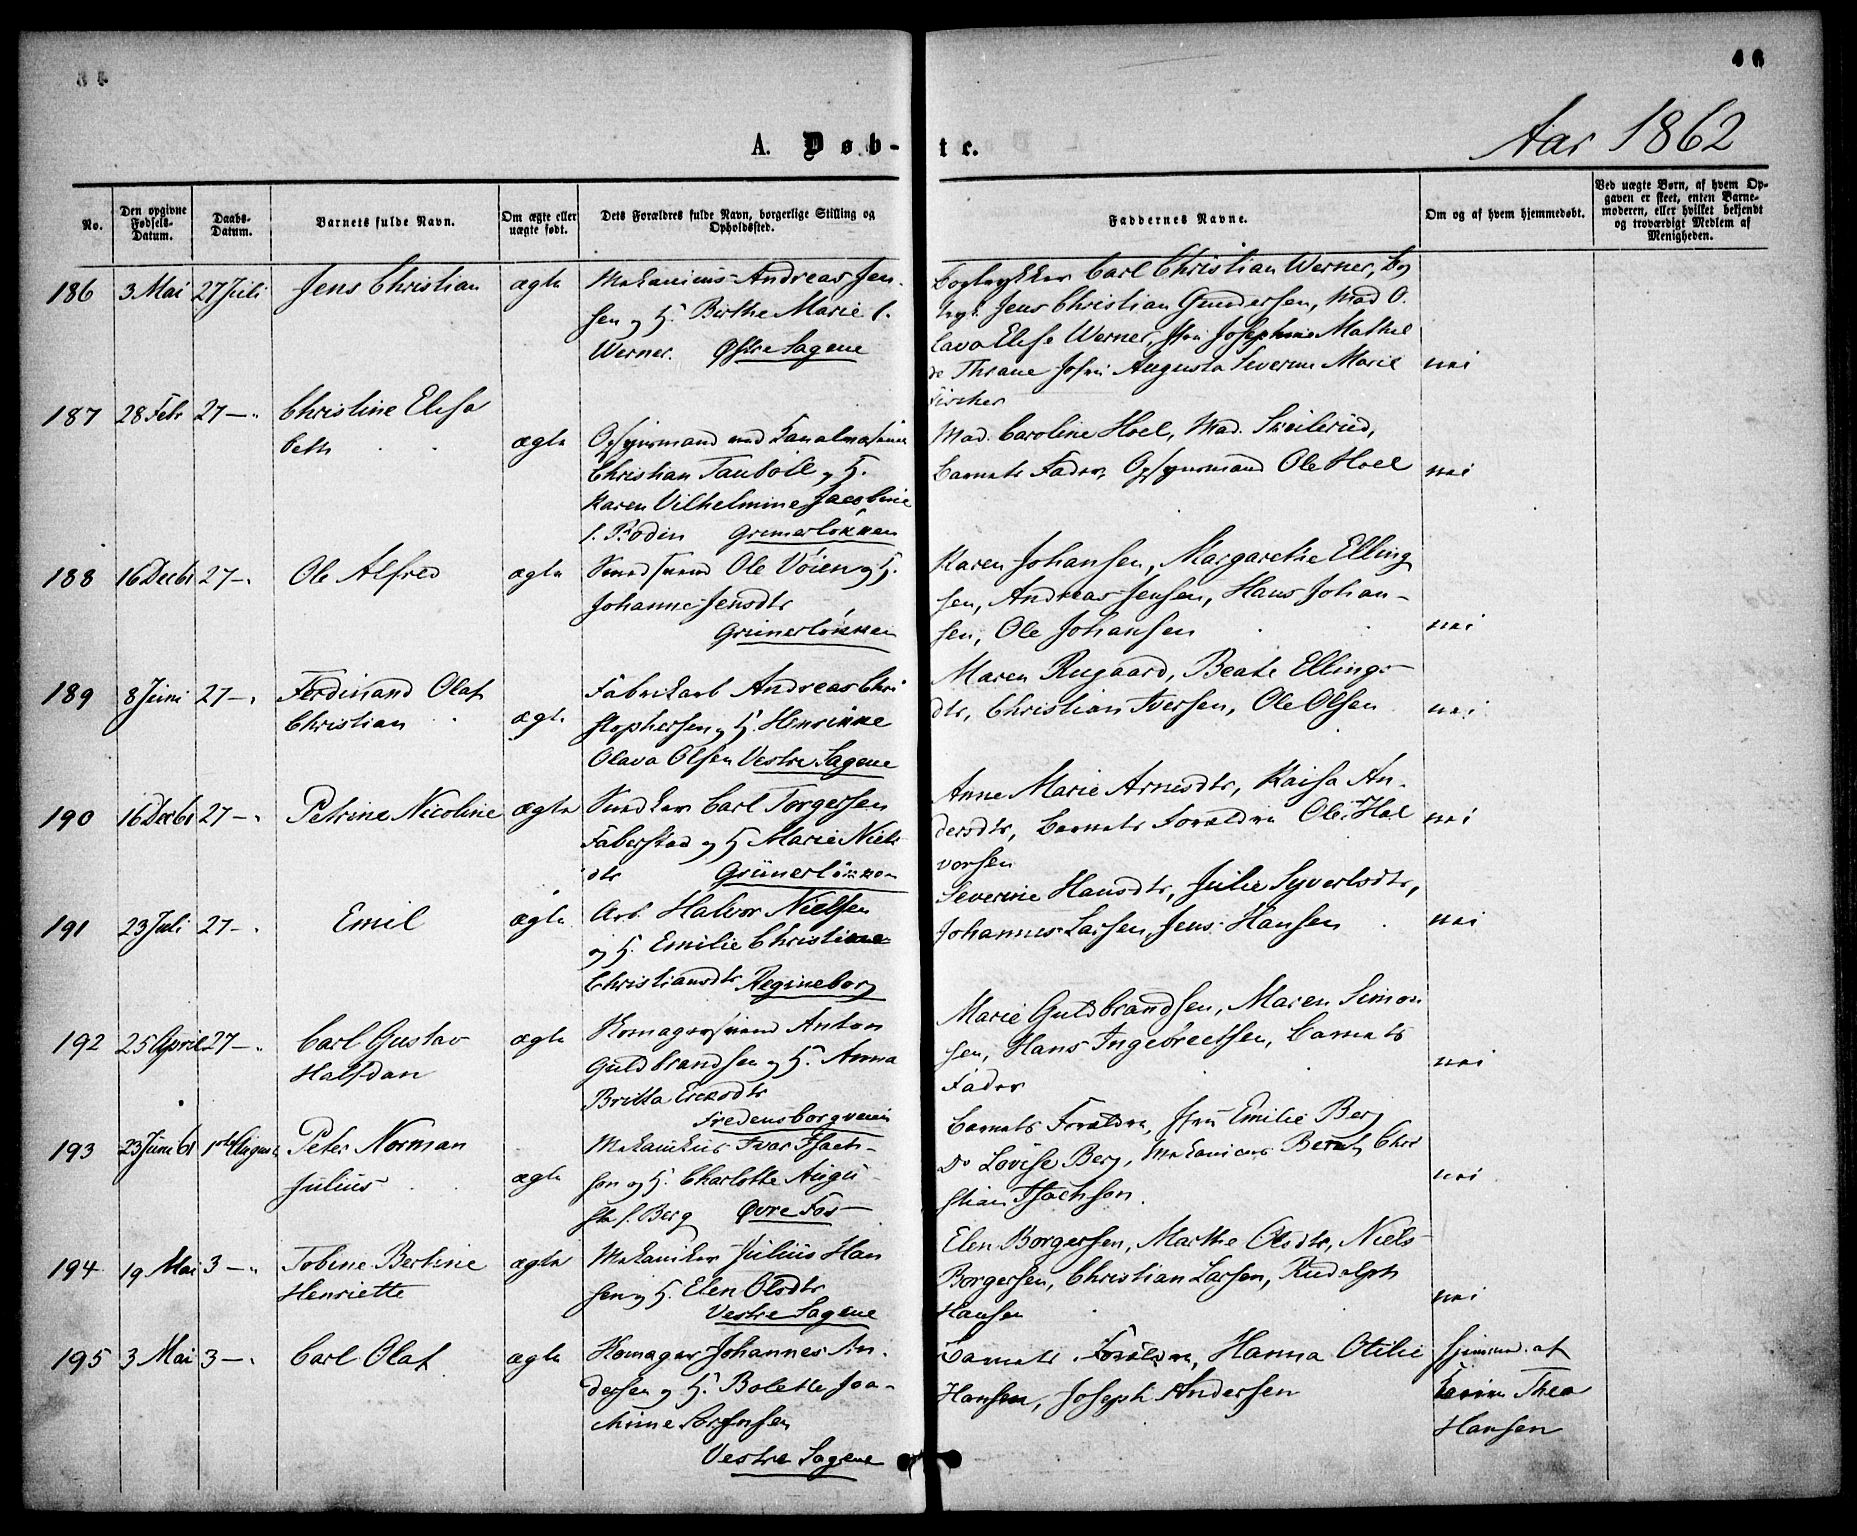 46
Aar 1862
A. Døb-te.
No.
Den opgivne Fødsels-Datum.
Daabs-Datum.
Barnets fulde Navn.
Om ægte eller uægte født.
Dets Forældres fulde Navn, borgerlige Stilling og Opholdssted.
Faddernes Navne.
Om og af hvem hjemmedøbt.
Ved uægte Børn, af hvem Opgaven er skeet, enten Barnemoderen, eller hvilket bekjendt og troværdigt Medlem af Menigheden.
186 3 Mai 27 Juli Jens Christian ægte
Mekanicus Andreas Jen-
sen og H. Birthe Marie f.
Werner. Østre Sagene
Bogtrykker Carl Christian Werner, Bog
tryk. Jens Christian Gundersen, Mad O.
lava Elise Werner, Jfru Josephine Mathil
de Thrane Jfru Augusta Severine Marie
Fischer
nei
187 28 Febr 27 — Christine Elisa
beth
ægte
Opsynsmand ved Kanalvæsenet
Christian Taubøll og H.
Karen Vilhelmine Jacobine
f. Bodin Grünerløkken
Mad. Caroline Hoel, Mad. Skeilerud,
Barnets Fader, Opsynsmand Ole Hoel
nei
188 16 Dec 61 27 — Ole Alfred ægte
Smedsvend Ole Vøien og H.
Johanne Jensdtr
Grünerløkken
Karen Johansen, Margarethe Elling
sen, Andreas Jensen, Hans Johan-
sen, Ole Johansen
nei
189 8 Juni 27 — Ferdinand Olaf
Christian
ægte
Fabrikarb Andreas Chri
stophersen og H. Henrikke
Olava Olsen Vestre Sagene
Maren Rugaard, Beate Ellings-
dtr, Christian Iversen, Ole Olsen
nei
190 16 Dec 61 27 — Petrine Nicoline ægte
Snedker Carl Torgersen
Faberstad og H Marie Niels
dtr Grünerløkken
Anne Marie Arnesdtr, Kaisa An-
dersdtr, Barnets Forældre Ole Hal
vorsen
nei
191 23 Juli 27 — Emil ægte
Arb. Halvor Nielsen
og H. Emilie Christine
Christiansdtr Regineborg
Severine Hansdtr, Julie Syvertsdtr,
Johannes Larsen, Jens Hansen
nei
192 25 April 27 — Carl Gustav
Halfdan
ægte
Skomagersvend Anton
Guldbrandsen og H. Anna
Britta Ericsdtr
Fredensborgveien
Marie Guldbrandsen, Maren Simon
sen, Hans Ingebretsen, Barnets
Fader
nei
193 23 Juni 61 1ste August Peter Norman
Julius
ægte
Mekanikus Ivar Isach-
sen og H. Charlotte Augu-
sta f. Berg Øvre Fos
Barnets Forældre, Jfru Emilie Berg
Do Lovise Berg, Mekanicus Bernt Chri
stian Isachsen.
nei
194 19 Mai 3 — Tobine Bertine
Henriette
ægte
Mekaniker Julius Han
sen og H. Elen Olsdtr
Vestre Sagene
Elen Borgersen, Marthe Olsdtr, Niels
Borgersen, Christian Larsen, Rudolph
Hansen
nei
195 3 Mai 3 — Carl Olaf ægte
Skomager Johannes An-
dersen og H. Bolette Joa-
chime Sørensen
Vestre Sagene
Barnets Forældre, Hanna Otilie
Hansen, Joseph Andersen
hjemmed. af
Thea
Hansen